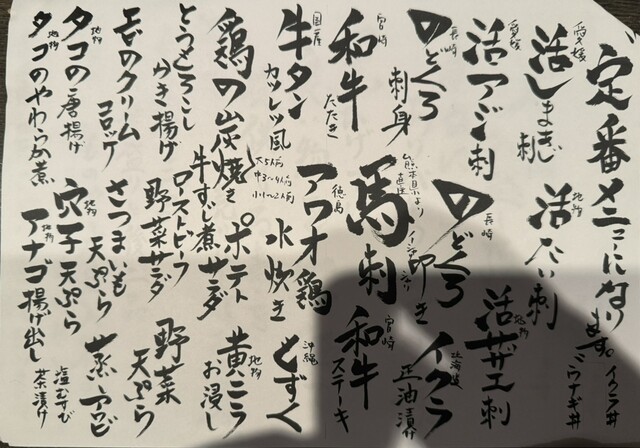 定番メニューになります。
イクラ丼
ミニウナギ丼
愛媛 活しまあじ刺
地物 活たい刺
愛媛 活アジ刺
地物 活サザエ刺
長崎 のどぐろ刺身
長崎 のどぐろ叩き
北海道 イクラ正油漬け
宮崎 和牛たたき
熊本県より直送 馬刺
宮崎 和牛ステーキ
国産 牛タンカツレツ風
徳島 アワオ鶏水炊き
大5人前
中3〜4人前
小1〜2人前
沖縄 もずく
鶏の炭焼き
ポテトサラダ
地物 黄ニラお浸し
牛すじ煮
ローストビーフ
とうもろこしかき揚げ
野菜サラダ
野菜天ぷら
エビのクリームコロッケ
さつまいも天ぷら
蒸アワビ
地物 タコの唐揚げ
地物 穴子天ぷら
地物 タコのやわらか煮
地物 アナゴ揚げ出し
塩むすび
茶漬け